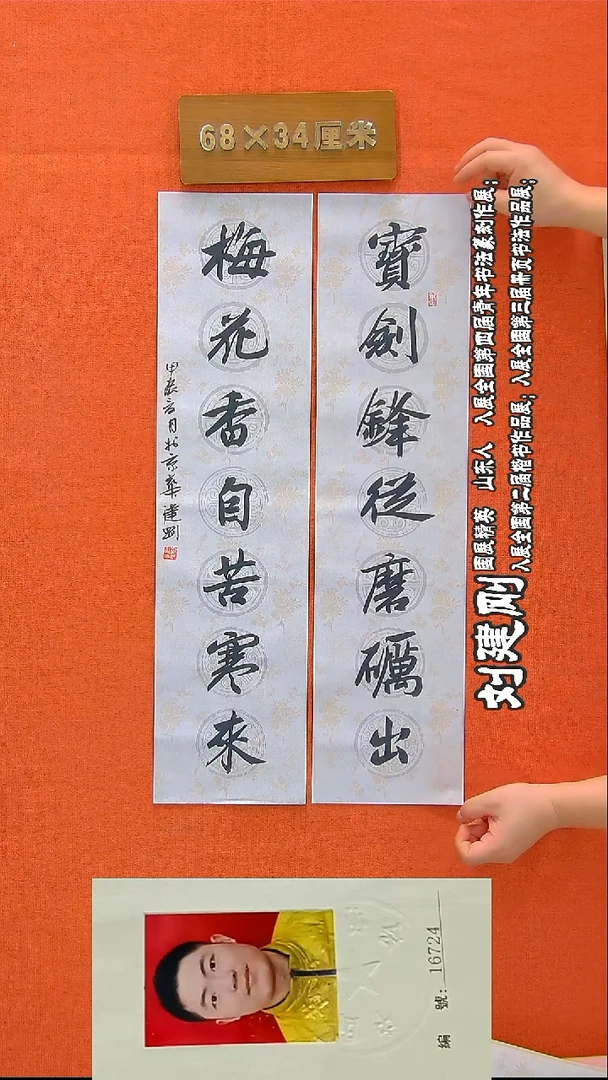 68×34厘米
寶劍鋒從磨礪出
梅花香自苦寒來
刘建刚
国展精英 山东人 入展全国第四届青年书法篆刻作展；
入展全国第二届楷书作品展；入展全国第三届册页书法作品展；
編號：16724